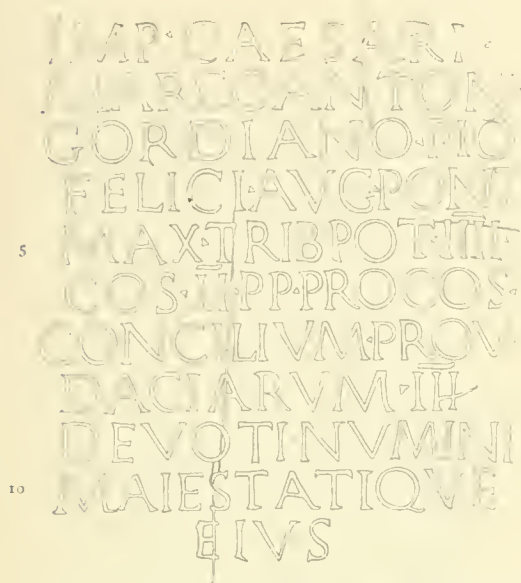 IMP·CAESARI·
MARCO·ANTON
GORDIANO·PIO
FELICI·AVG·PONT
5 MAX·TRIB POT·IIII
COS·II·PP·PROCOS·
CONCILIVM·PROV·
DACIARVM·III
DEVOTI·NVMINI
10 MAIESTATIQVE
EIVS